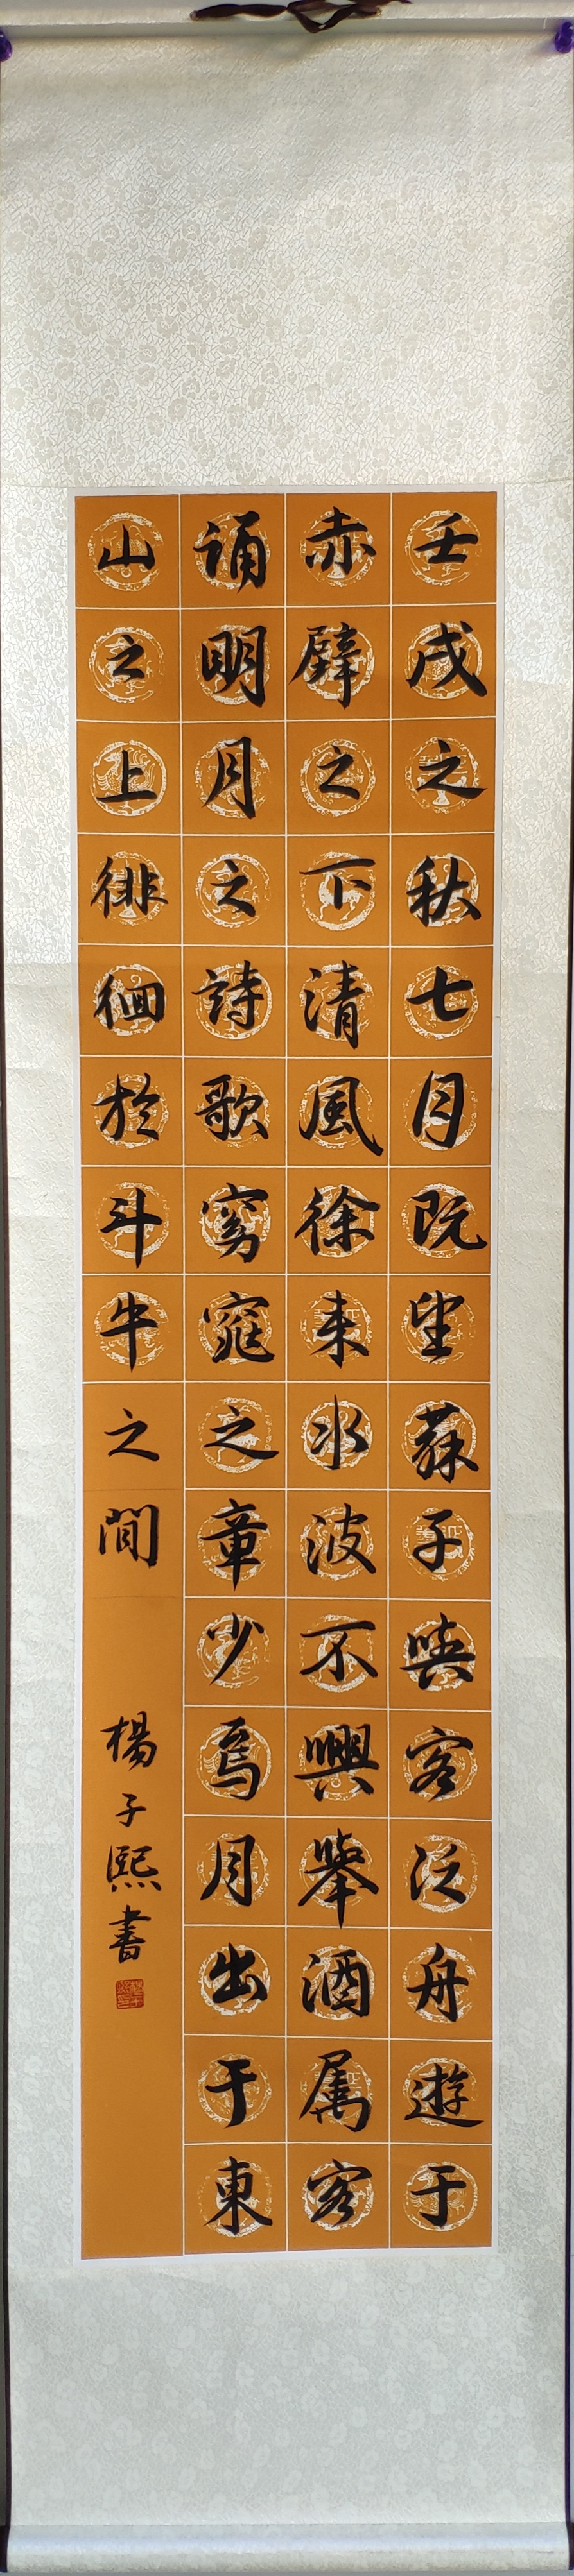 壬戌之秋七月既望蘇子與客泛舟遊于
赤壁之下清風徐来水波不興舉酒属客
誦明月之詩歌窈窕之章少焉月出于東
山之上徘徊於斗牛之間
楊子熙書